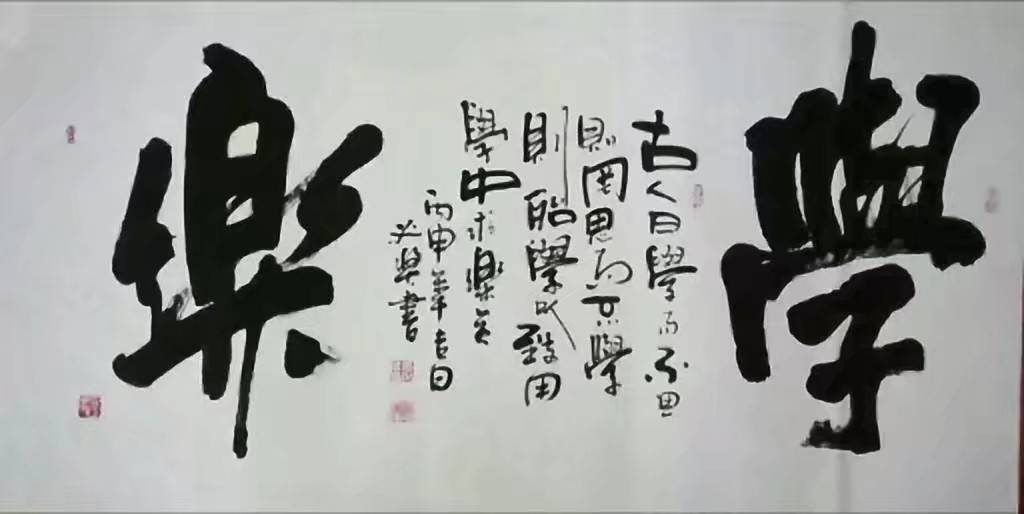 學
古人曰學而不思
則罔思而不學
則殆學以致用
學中求樂
丙申年吉日
書
樂